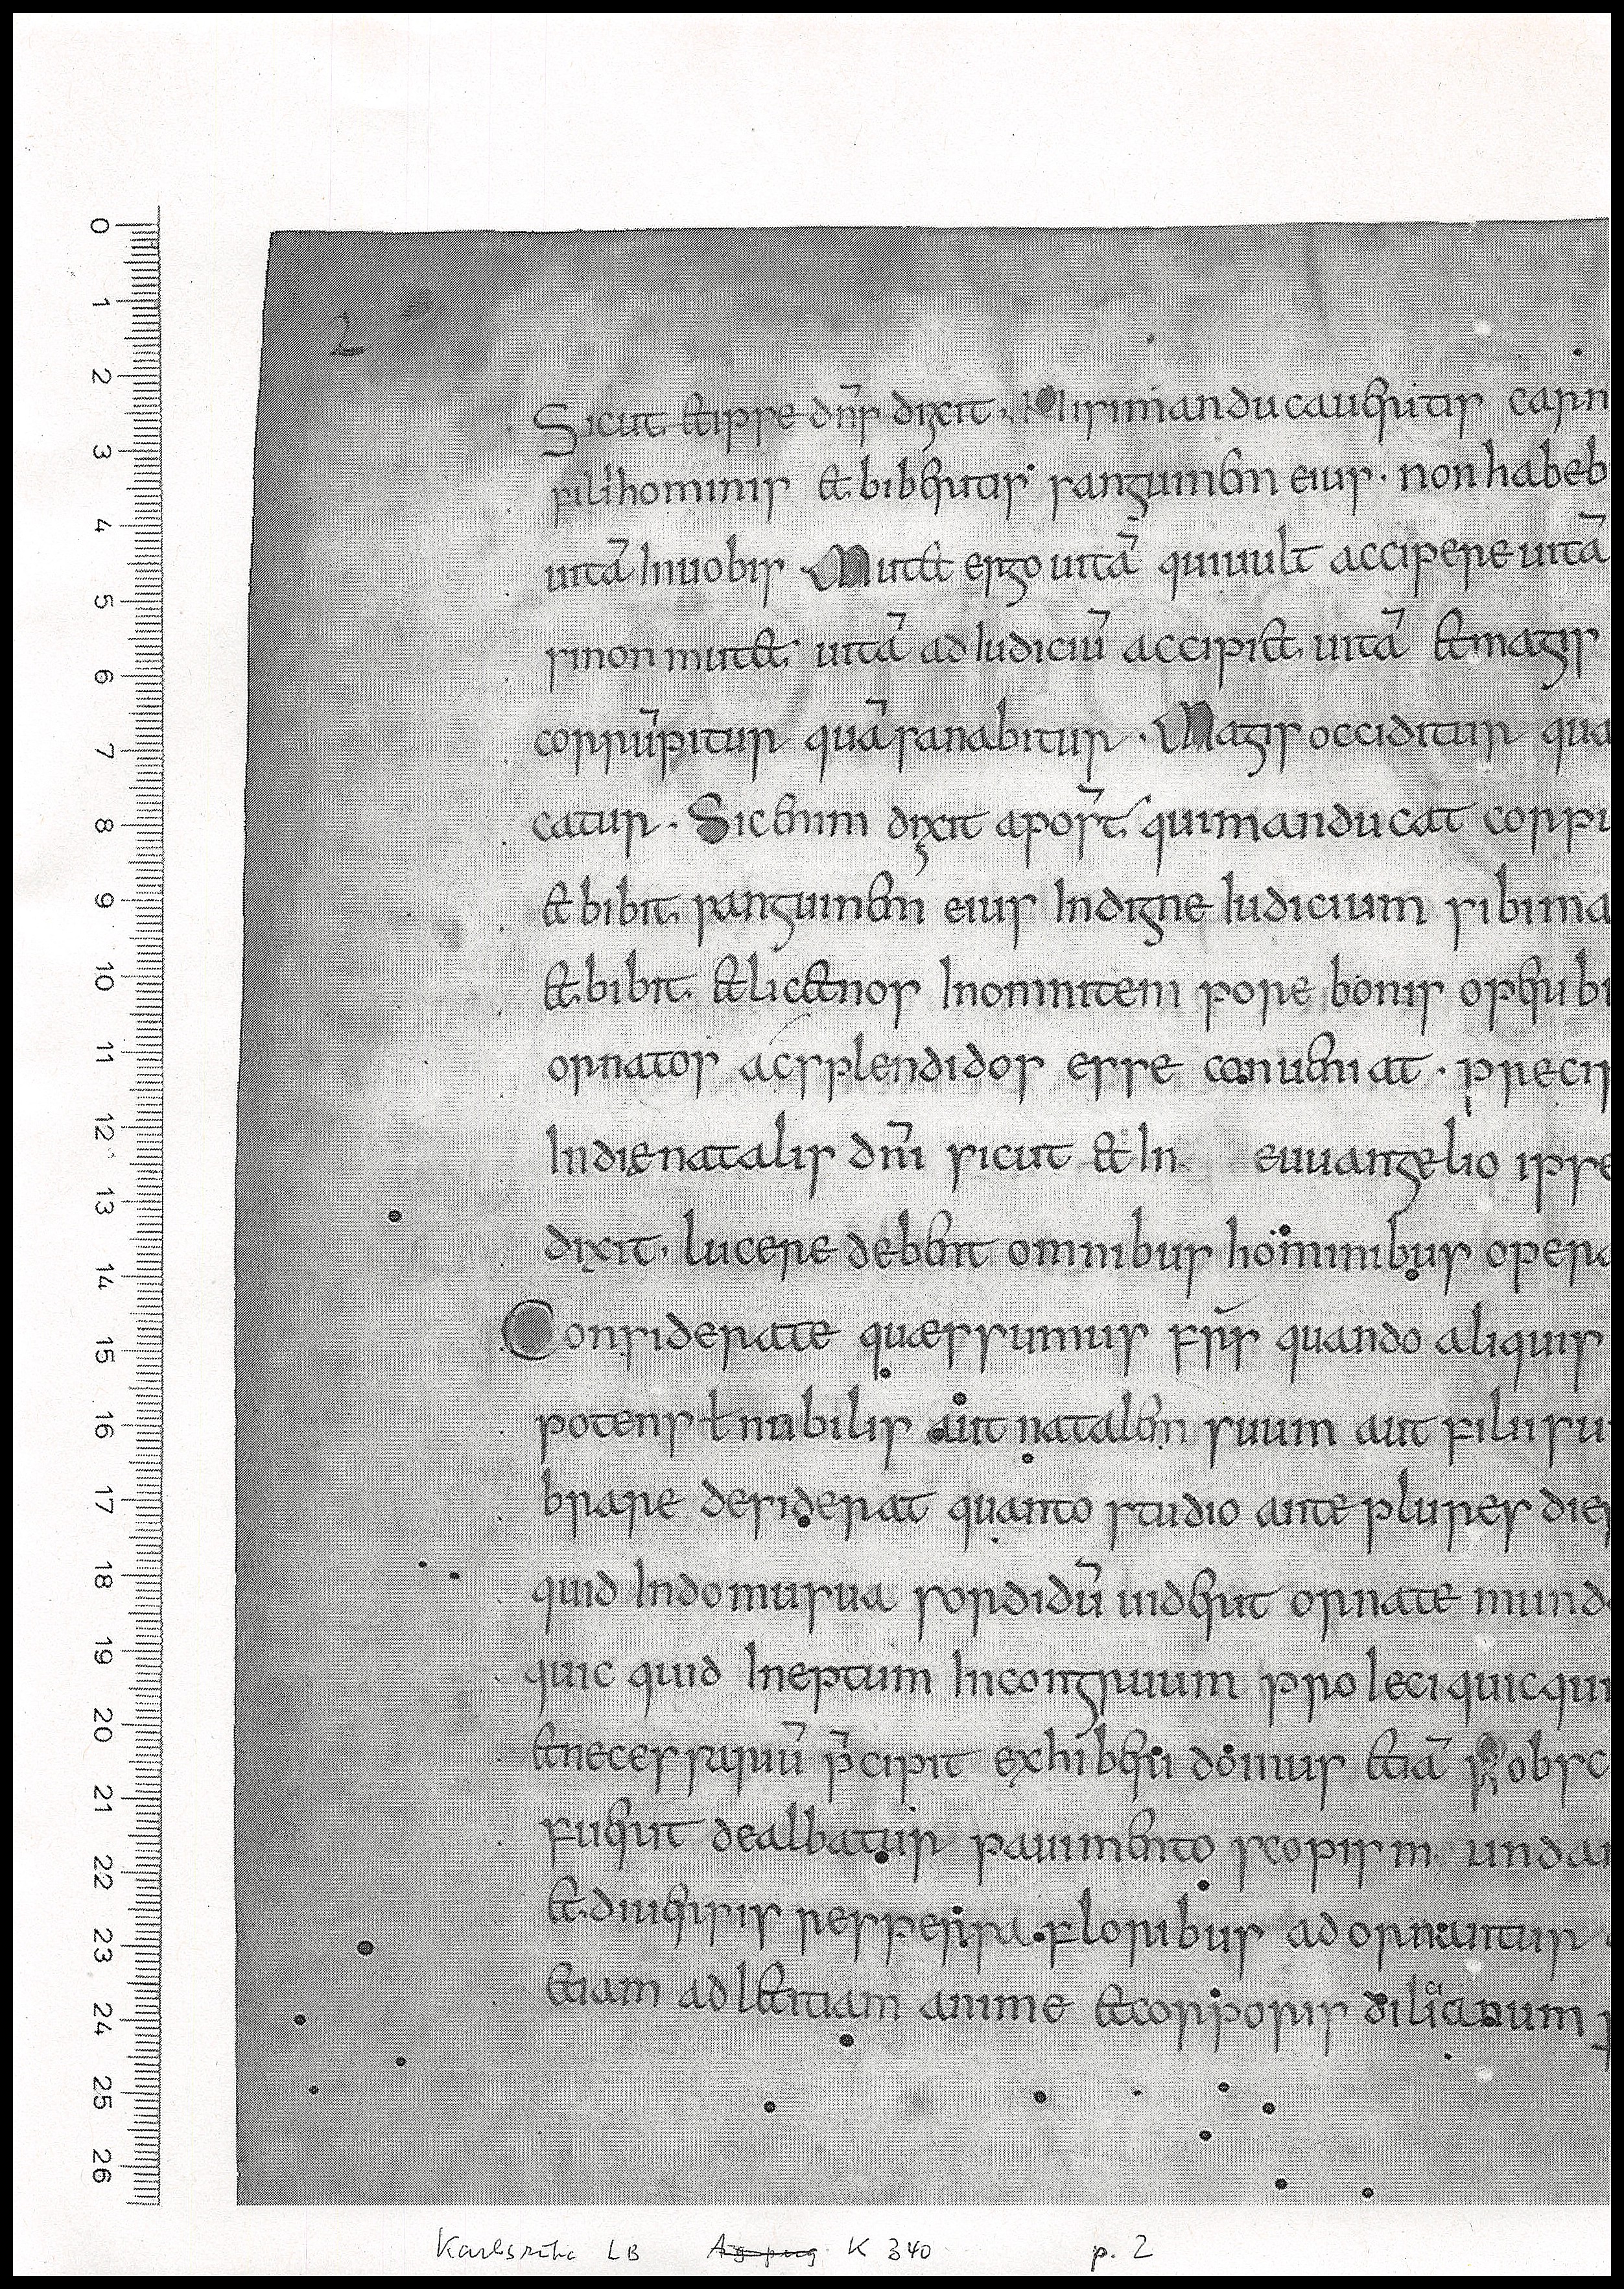 0
1
2
3
4
5
6
7
8
9
10
11
12
13
14
15
16
17
18
19
20
21
22
23
24
25
26
2
Sicut & ipse dn̄s dixit. Nisi manducaueritis carn
filii hominis & biberitis sanguinem eius. non habeb
uitā In uobis Mutet ergo uitā qui uult accipere uitā
si non mutet uitā ad Iudiciū accipiet uitā & magis
corrūpitur quā sanabitur. Magis occiditur qua
catur. Sic enim dixit apost̄ qui manducat corpu
& bibit sanguinem eius Indigne Iudicium sibi ma
& bibit & licet nos In omni tem pore bonis operibu
ornatos ac splendidos esse conueniat. preci
In die natalis dn̄i sicut & In euuangelio ipse
dixit. lucere debent omnibus hominibus opera
Considerate quæssumus fr̄s quando aliquis
potens ł nubilis aut natalem suum aut filii su
brare desiderat quanto studio ante plures die
quid In domu sua sordidū uiderit ornate mund
quic quid Ineptum Incongruum pro Ieci quicqui
& necessariū p̄cipit exhiberi domus etiā obsc
fuerit dealbatur pauimento scopis m undan
& diuersis respersa floribus adornantur
etiam ad letitiam anime & corporis
Karlsruhe LB K 340 p. 2